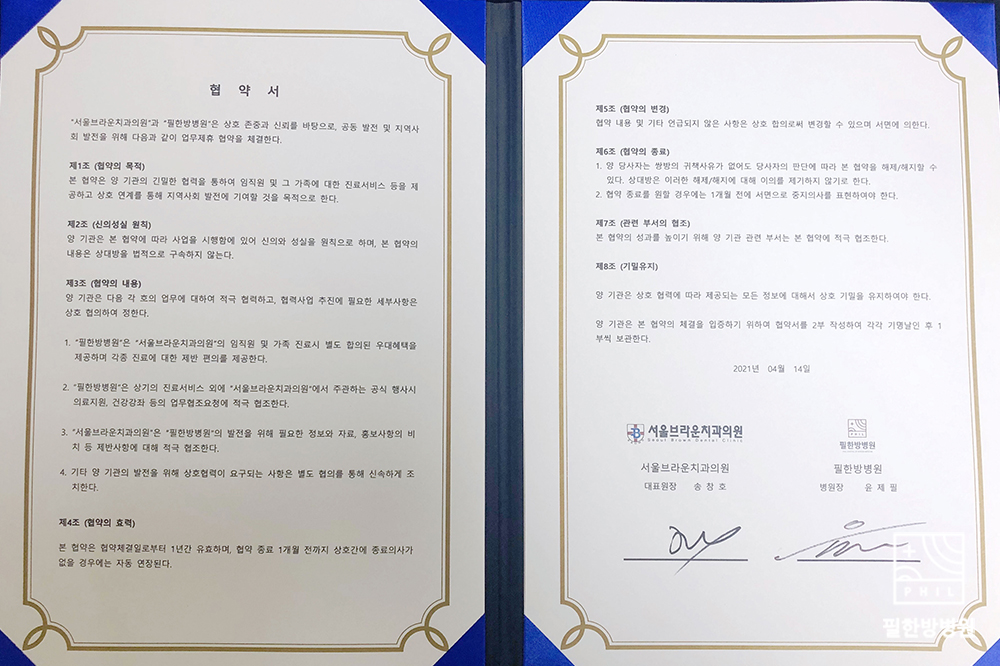 협 약 서
"서울브라운치과의원"과 "필한방병원"은 상호 존중과 신뢰를 바탕으로, 공동 발전 및 지역사
회 발전을 위해 다음과 같이 업무제휴 협약을 체결한다.
제1조 (협약의 목적)
본 협약은 양 기관의 긴밀한 협력을 통하여 임직원 및 그 가족에 대한 진료서비스 등을 제
공하고 상호 연계를 통해 지역사회 발전에 기여할 것을 목적으로 한다.
제2조 (신의성실 원칙)
양 기관은 본 협약에 따라 사업을 시행함에 있어 신의와 성실을 원칙으로 하며, 본 협약의
내용은 상대방을 법적으로 구속하지 않는다.
제3조 (협약의 내용)
양 기관은 다음 각 호의 업무에 대하여 적극 협력하고, 협력사업 추진에 필요한 세부사항은
상호 협의하여 정한다.
1. "필한방병원"은 "서울브라운치과의원"의 임직원 및 가족 진료시 별도 합의된 우대혜택을
제공하며 각종 진료에 대한 제반 편의를 제공한다.
2. "필한방병원"은 상기의 진료서비스 외에 "서울브라운치과의원"에서 주관하는 공식 행사시
의료지원, 건강강좌 등의 업무협조요청에 적극 협조한다.
3. "서울브라운치과의원"은 "필한방병원"의 발전을 위해 필요한 정보와 자료, 홍보사항의 비
치 등 제반사항에 대해 적극 협조한다.
4. 기타 양 기관의 발전을 위해 상호협력이 요구되는 사항은 별도 협의를 통해 신속하게 조
치한다.
제4조 (협약의 효력)
본 협약은 협약체결일로부터 1년간 유효하며, 협약 종료 1개월 전까지 상호간에 종료의사가
없을 경우에는 자동 연장된다.
제5조 (협약의 변경)
협약 내용 및 기타 언급되지 않은 사항은 상호 합의로써 변경할 수 있으며 서면에 의한다.
제6조 (협약의 종료)
1. 양 당사자는 쌍방의 귀책사유가 없어도 당사자의 판단에 따라 본 협약을 해제/해지할 수
있다. 상대방은 이러한 해제/해지에 대해 이의를 제기하지 않기로 한다.
2. 협약 종료를 원할 경우에는 1개월 전에 서면으로 중지의사를 표현하여야 한다.
제7조 (관련 부서의 협조)
본 협약의 성과를 높이기 위해 양 기관 관련 부서는 본 협약에 적극 협조한다.
제8조 (기밀유지)
양 기관은 상호 협력에 따라 제공되는 모든 정보에 대해서 상호 기밀을 유지하여야 한다.
양 기관은 본 협약의 체결을 입증하기 위하여 협약서를 2부 작성하여 각각 기명날인 후 1
부씩 보관한다.
2021년 04월 14일
서울브라운치과의원
Seoul Brown Dental Clinic
서울브라운치과의원
대표원장 송 창 호
PHIL
필한방병원
필한방병원
병원장 윤 제 필
PHIL
필한방병원